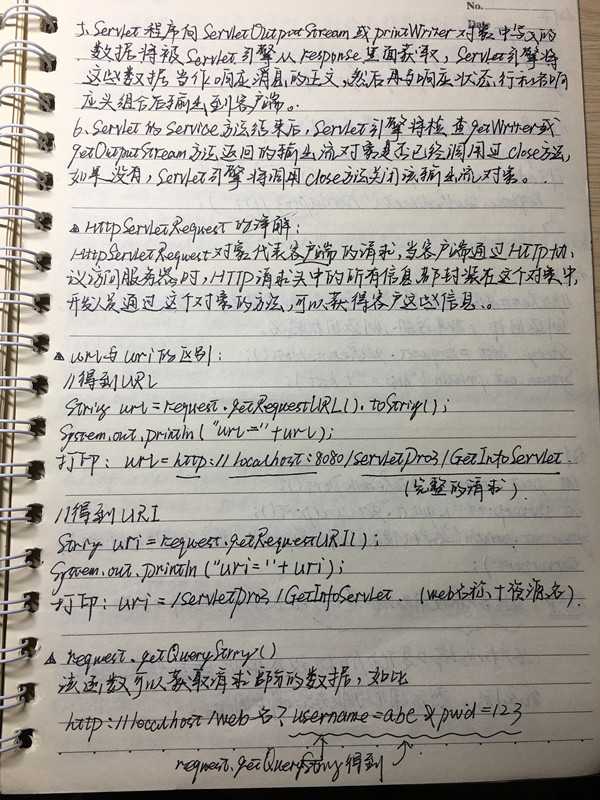 No.
Date
5、Servlet程序向ServletOutputStream或printWriter对象中写入的
数据将被Servlet引擎从response里面获取，Servlet引擎将
这些数据当作响应消息的正文，然后再与响应状态行和各响
应头组合后输出到客户端。
6、Servlet的service方法结束后，Servlet引擎将检查getWriter或
getOutputStream方法返回的输出流对象是否已经调用过close方法，
如果没有，Servlet引擎将调用close方法关闭该输出流对象。
▲ HttpServletRequest的详解：
HttpServletRequest对象代表客户端的请求，当客户端通过HTTP协
议访问服务器时，HTTP请求头中的所有信息都封装在这个对象中，
开发人员通过这个对象的方法，可以获得客户这些信息。
▲ url与uri的区别：
//得到URL
String url=request.getRequestURL().toString();
System.out.println("url="+url);
打印：url=http://localhost:8080/servletPro3/GetInfoServlet.
(完整的请求)
//得到URI
String uri=request.getRequestURI();
System.out.println("uri="+uri);
打印：uri=/servletPro3/GetInfoServlet. (web名称+资源名)
▲ request.getQueryString()
该函数可以获取请求部分的数据，如比
http://localhost/web名?username=abc&pwd=123
request.getQueryString得到